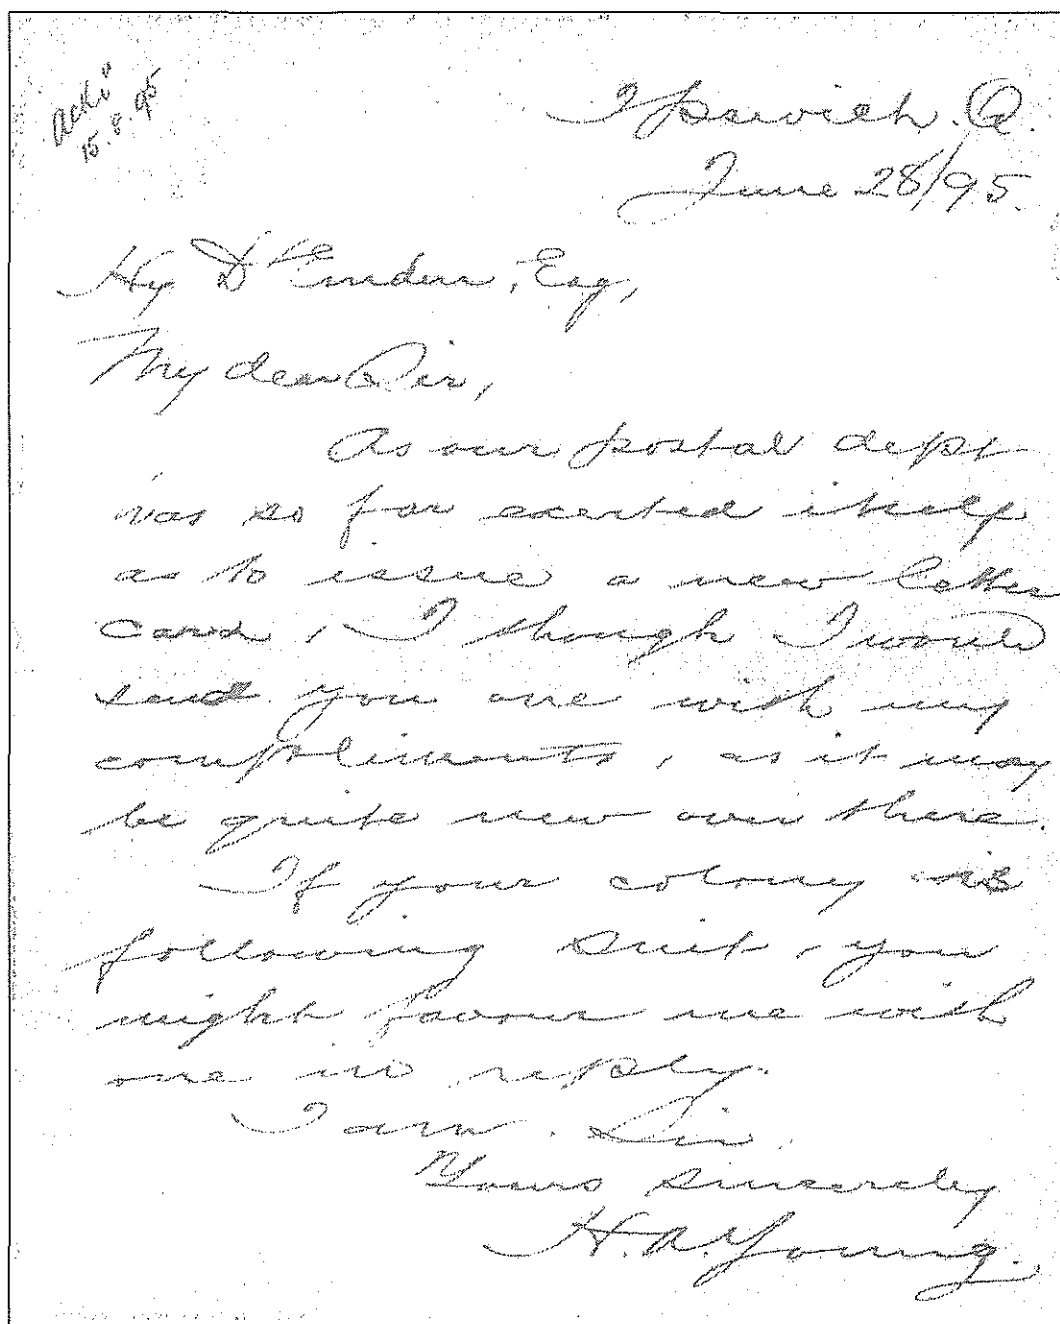 Ackd
15.8.95
Ipswich. Q.
June 28/95.
Hy D'Emden, Esq,
My dear Sir,
As our postal dept
has so far exerted itself
as to issue a new letter
card, I though I would
send you one with my
compliments, as it may
be quite new over there.
If your colony is
following suit, you
might favour me with
one in reply.
I am. Sir.
Yours sincerely
H. A. Young.